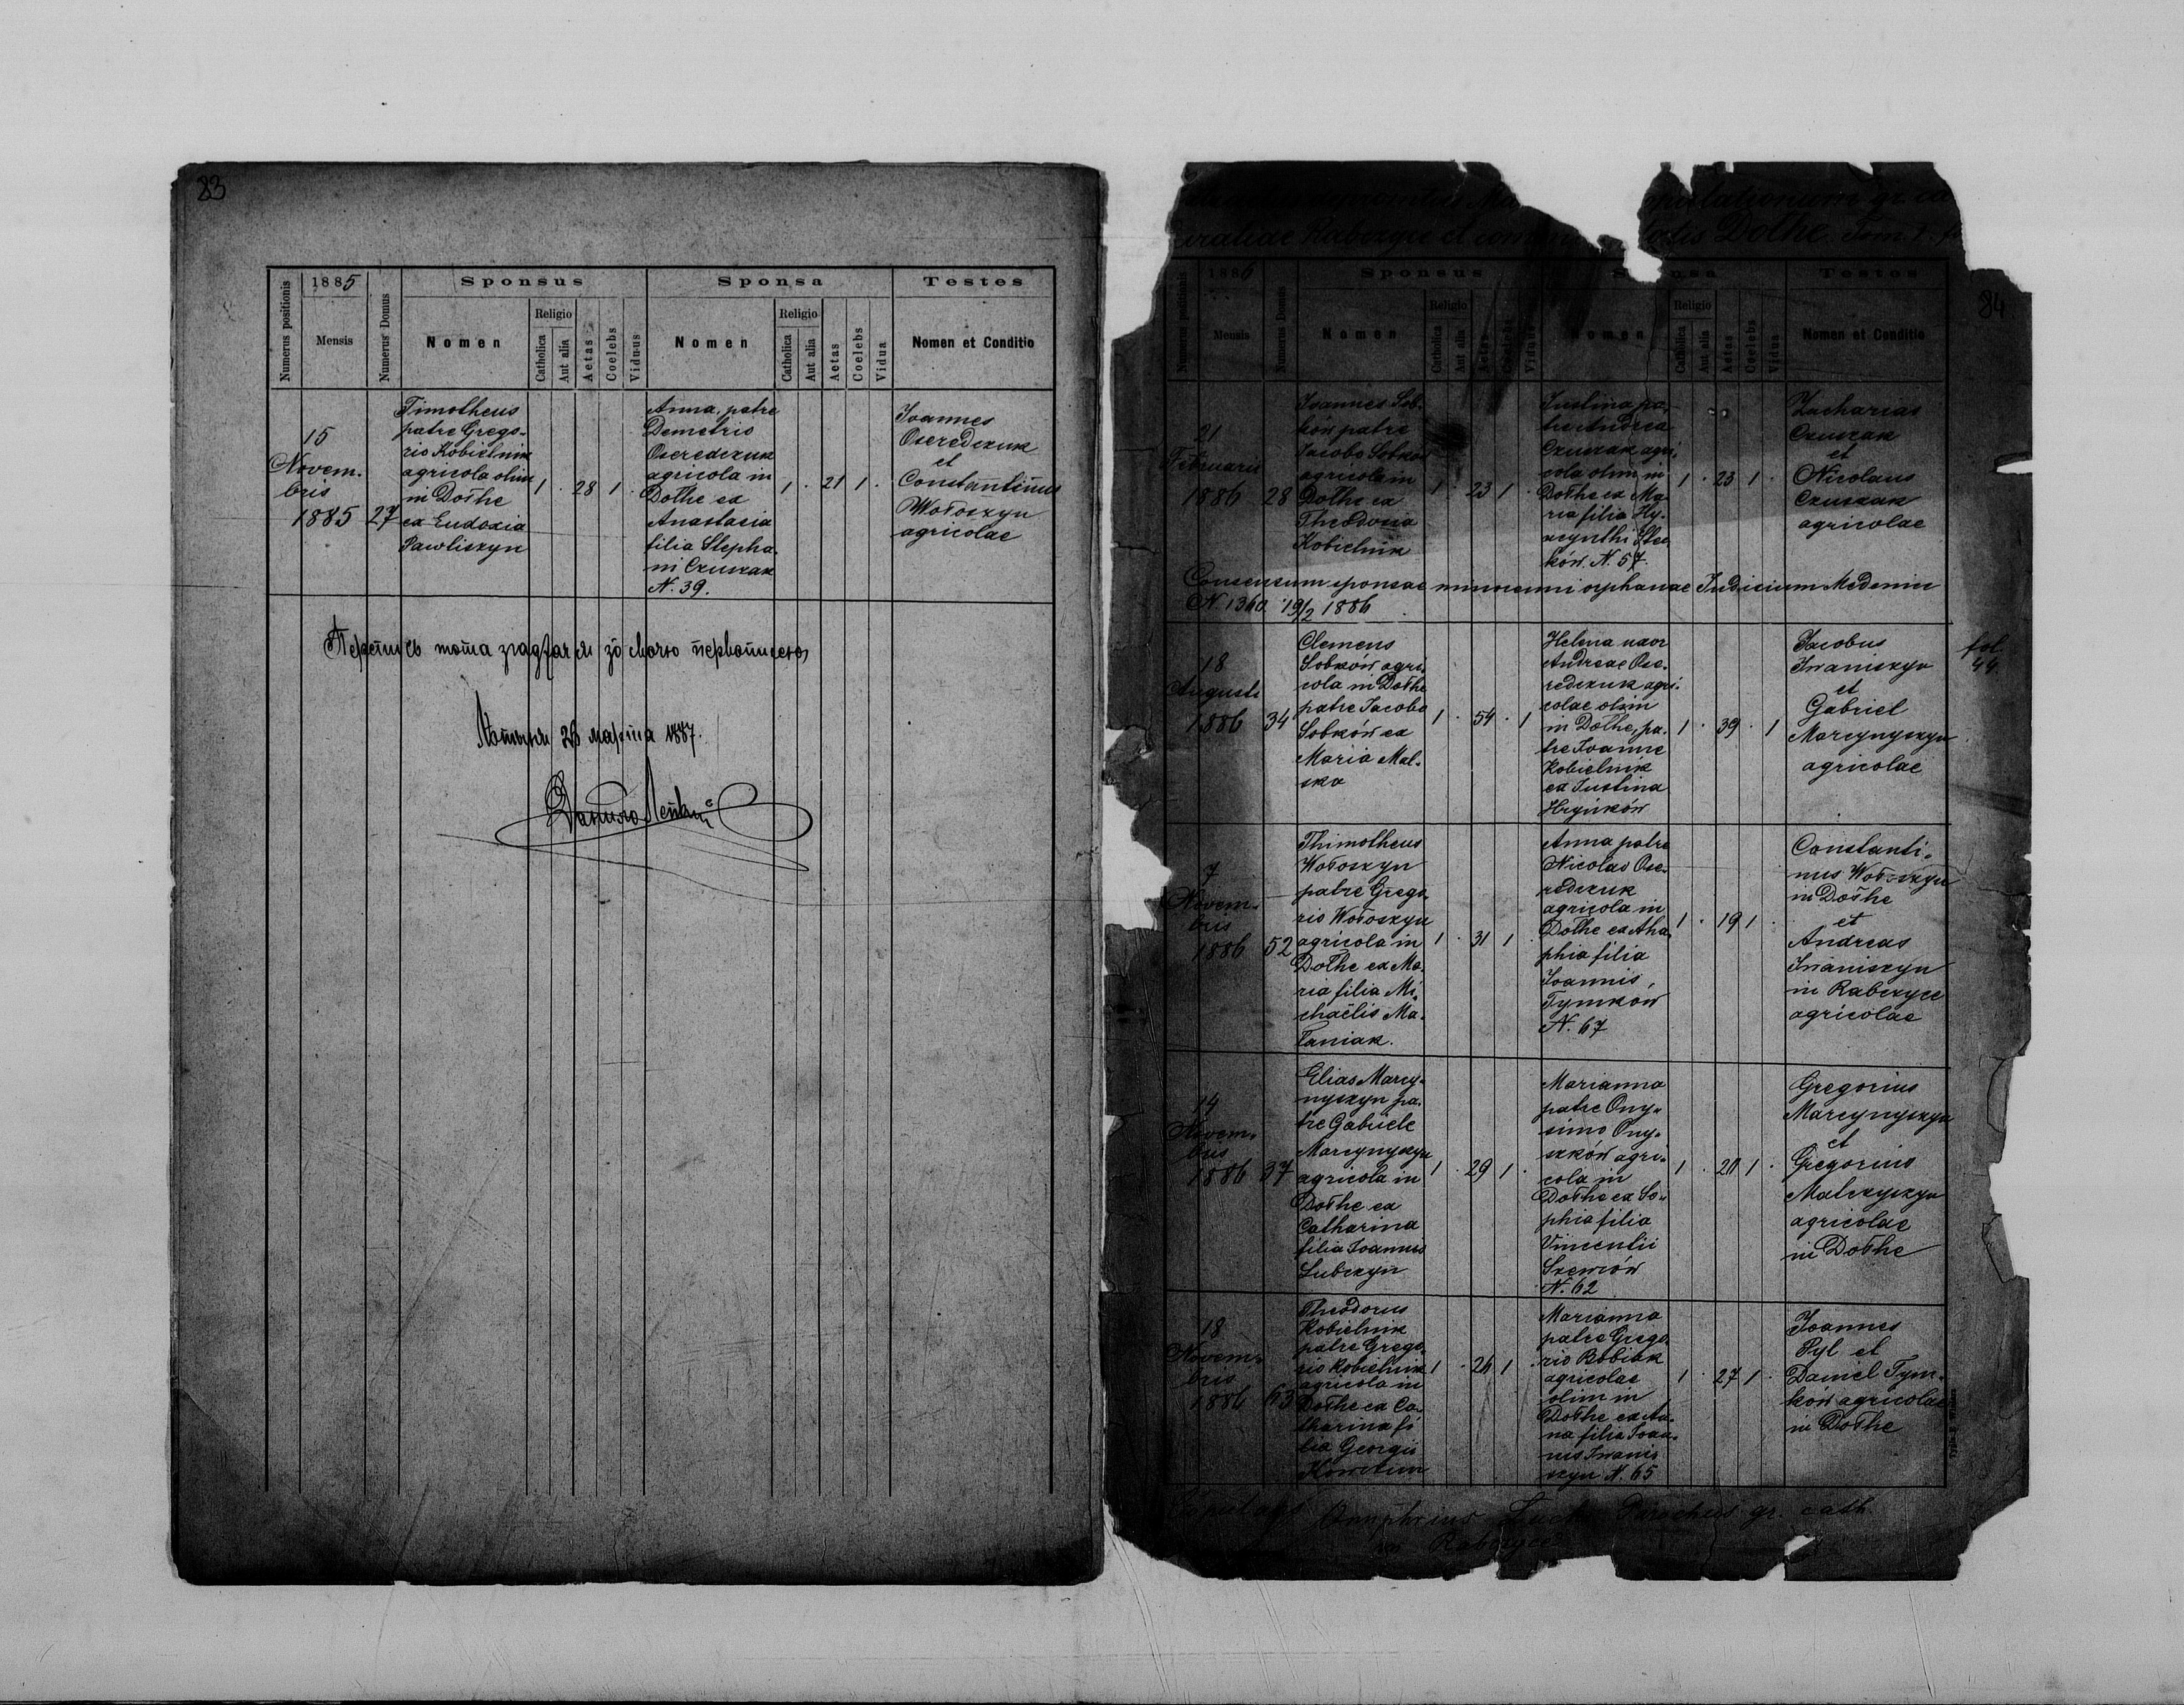 23
1885
Numerus positionis
Mensis
Numerus Domus
Sponsus
Nomen
Religio
Catholica
Aut alia
Aetas
Coelebs
Viduus
Sponsa
Nomen
Religio
Catholica
Aut alia
Aetas
Coelebs
Vidua
Testes
Nomen et Conditio
15
Novem-
bris
1885
27
Timotheus
patre Grego-
rio Kobielnik
agricola olim
in Dołhe
ex Eudoxia
Pawliszyn
1 . 28 1 .
Anna, patre
Demetrio
Oseredczuk
agricola in
Dołhe ex
Anastasia
filia Stepha-
ni Czuszak
N. 39.
1 . 21 1 .
Joannes
Oseredczuk
et
Constantinus
Wołoszyn
agricolae
марта 1887.
84
Rabczyce et Dołhe Tom I.
1886
Numerus positionis
Mensis
Numerus Domus
Sponsus
Nomen
Religio
Catholica
Aut alia
Aetas
Coelebs
Viduus
Sponsa
Nomen
Religio
Catholica
Aut alia
Aetas
Coelebs
Vidua
Testes
Nomen et Conditio
21
Februarii
1886
28
Joannes Sob-
ków patre
Jacobo Sobków
agricola in
Dołhe ex
Theodosia
Kobielnik
1 . 23 1 .
Justina pa-
tre Andrea
Czuszak agri-
cola olim in
Dołhe ex Ma-
ria filia Hy-
acynthi Stec-
ków. N. 57.
1 . 23 1 .
Zacharias
Czuszak
et
Nicolaus
Czuszak
agricolae
Consensum sponsae minorenni orphanae Judicium Medenice
N. 1360 19/2 1886
18
Augusti
1886
34
Clemens
Sobków agri-
cola in Dołhe
patre Jacobo
Sobków ex
Maria Mal-
ska
1 . 54 . 1
Helena uxor
Andreae Ose-
redczuk agri-
colae olim
in Dołhe, pa-
tre Joanne
Kobielnik
ex Justina
Hryńków
1 . 39 . 1
Jacobus
Iwaniszyn
et
Gabriel
Marcynyszyn
agricolae
fol.
44.
7
Novem-
bris
1886
52
Thimotheus
Wołoszyn
patre Grego-
rio Wołoszyn
agricola in
Dołhe ex Ma-
ria filia Mi-
chaëlis Ma-
łaniak.
1 . 31 1 .
Anna patre
Nicolao Ose-
redczuk
agricola in
Dołhe ex Aha-
phia filia
Joannis
Tymków
N. 67
1 . 19 1 .
Constanti-
nus Wołoszyn
in Dołhe
et
Andreas
Iwaniszyn
in Rabczyce
agricolae
14
Novem-
bris
1886
37
Elias Marcy-
nyszyn pa-
tre Gabriele
Marcynyszyn
agricola in
Dołhe ex
Catharina
filia Joannis
Lubczyn
1 . 29 1 .
Marianna
patre Ony-
simo Ony-
szków agri-
cola in
Dołhe ex So-
phia filia
Vincentii
Szewców
N. 62
1 . 20 1 .
Gregorius
Marcynyszyn
et
Gregorius
Malczyszyn
agricolae
in Dołhe
18
Novem-
bris
1886
63
Theodorus
Kobielnik
patre Grego-
rio Kobielnik
agricola in
Dołhe ex Ca-
tharina fi-
lia Georgii
1 . 26 1 .
Marianna
patre Grego-
rio Bobiak
agricolae
olim in
Dołhe ex An-
na filia Joan-
nis Iwani-
szyn N. 65
1 . 27 1 .
Joannes
Pyl et
Daniel Tym-
ków agricolae
in Dołhe
Onuphrius Parochus gr. cath.
Rabczyce